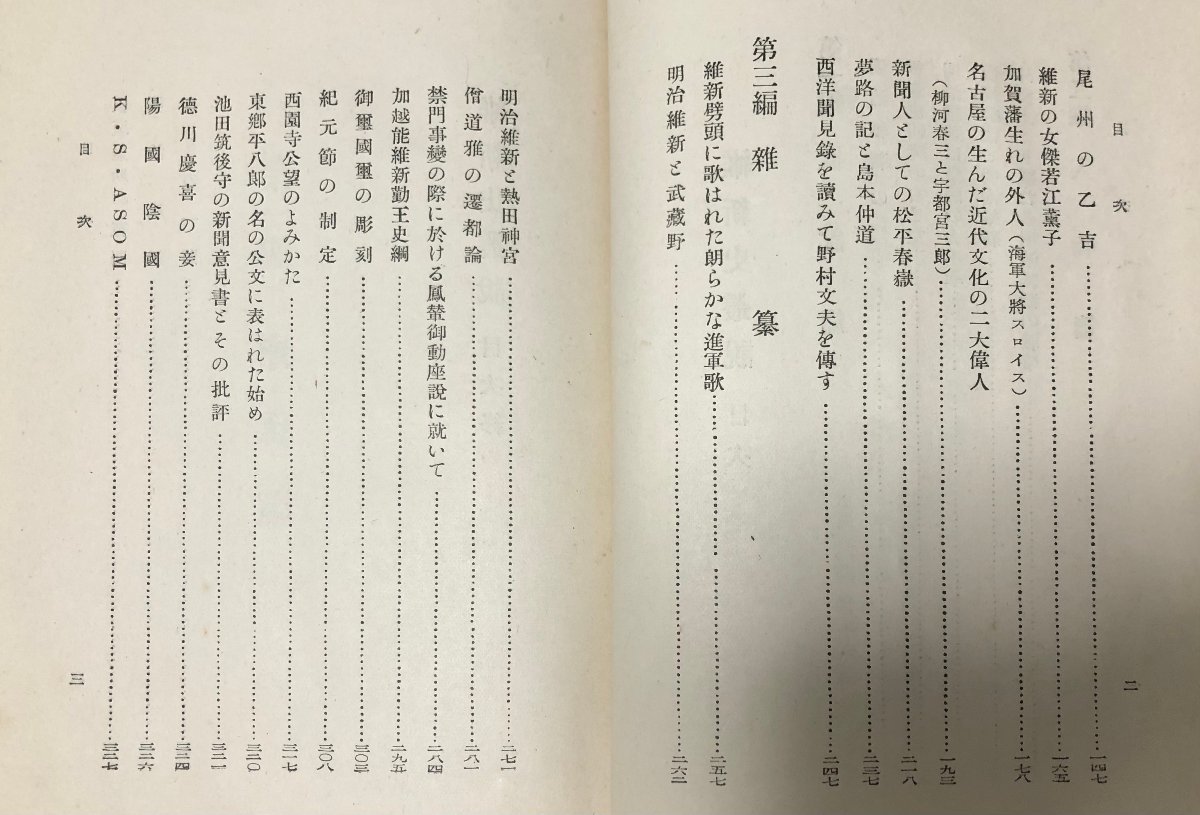 目次
二
尾州の乙吉……一四七
維新の女傑若江薰子……一六五
加賀藩生れの外人（海軍大將スロイス）……一七八
名古屋の生んだ近代文化の二大偉人
（柳河春三と宇都宮三郎）……一九三
新聞人としての松平春嶽……二一八
夢路の記と島本仲道……二三七
西洋聞見錄を讀みて野村文夫を傳す……二四七
第三編 雜纂
維新劈頭に歌はれた朗らかな進軍歌……二五七
明治維新と武藏野……二六二
明治維新と熱田神宮……二七一
僧道雅の遷都論……二八一
禁門事變の際に於ける鳳輦御動座說に就いて……二八四
加越能維新勤王史綱……二九五
御璽國璽の彫刻……三〇三
紀元節の制定……三〇八
西園寺公望のよみかた……三一七
東鄕平八郞の名の公文に表はれた始め……三二〇
池田筑後守の新聞意見書とその批評……三二一
德川慶喜の妾……三二四
陽國陰國……三二六
K・S・ASOM……三二七
目次
三